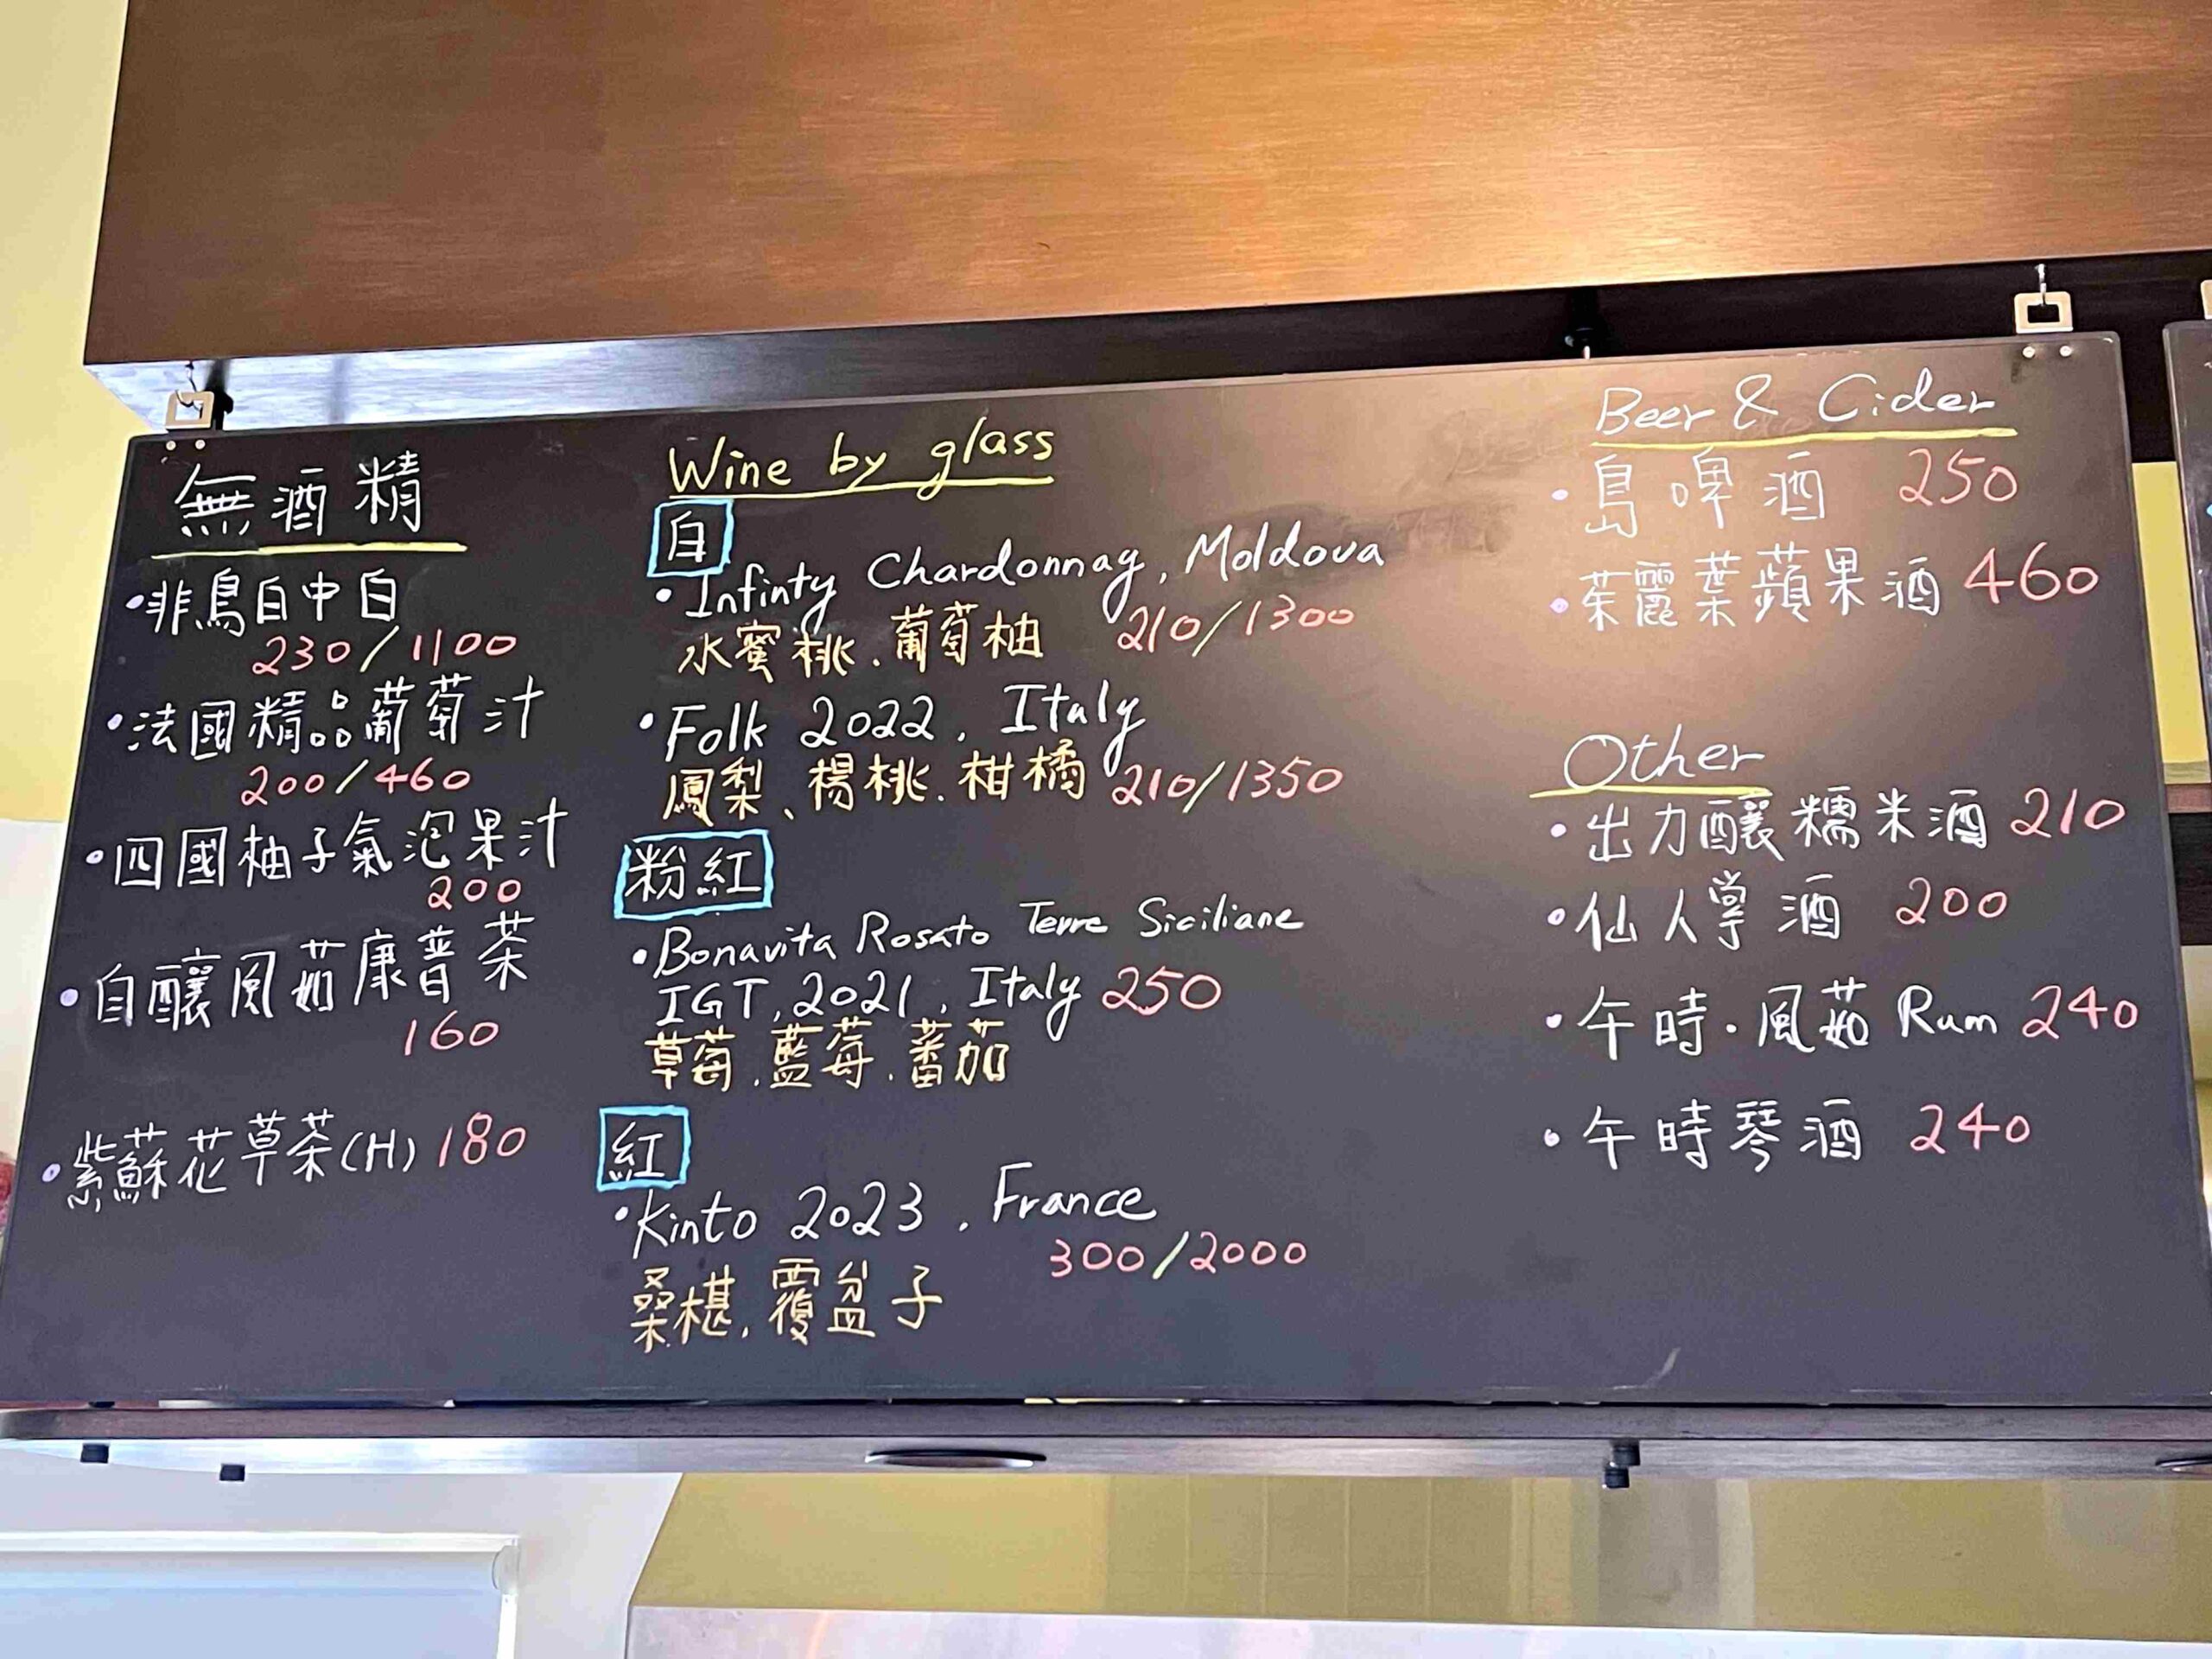 無酒精
・非鳥白中白
230/1100
・法國精品葡萄汁
200/460
・四國柚子氣泡果汁
200
・自釀風茹康普茶
160
・紫蘇花草茶(H) 180
Wine by glass
白
・Infinty Chardonnay, Moldova
水蜜桃.葡萄柚 210/1300
・Folk 2022, Italy
鳳梨、楊桃.柑橘 210/1350
粉紅
・Bonavita Rosato Terre Siciliane
IGT, 2021, Italy 250
草莓.藍莓.蕃茄
紅
・Kinto 2023, France
300/2000
桑椹,覆盆子
Beer & Cider
・島啤酒 250
・茱麗葉蘋果酒 460
Other
・出力釀糯米酒 210
・仙人掌酒 200
・午時・風茹 Rum 240
・午時琴酒 240